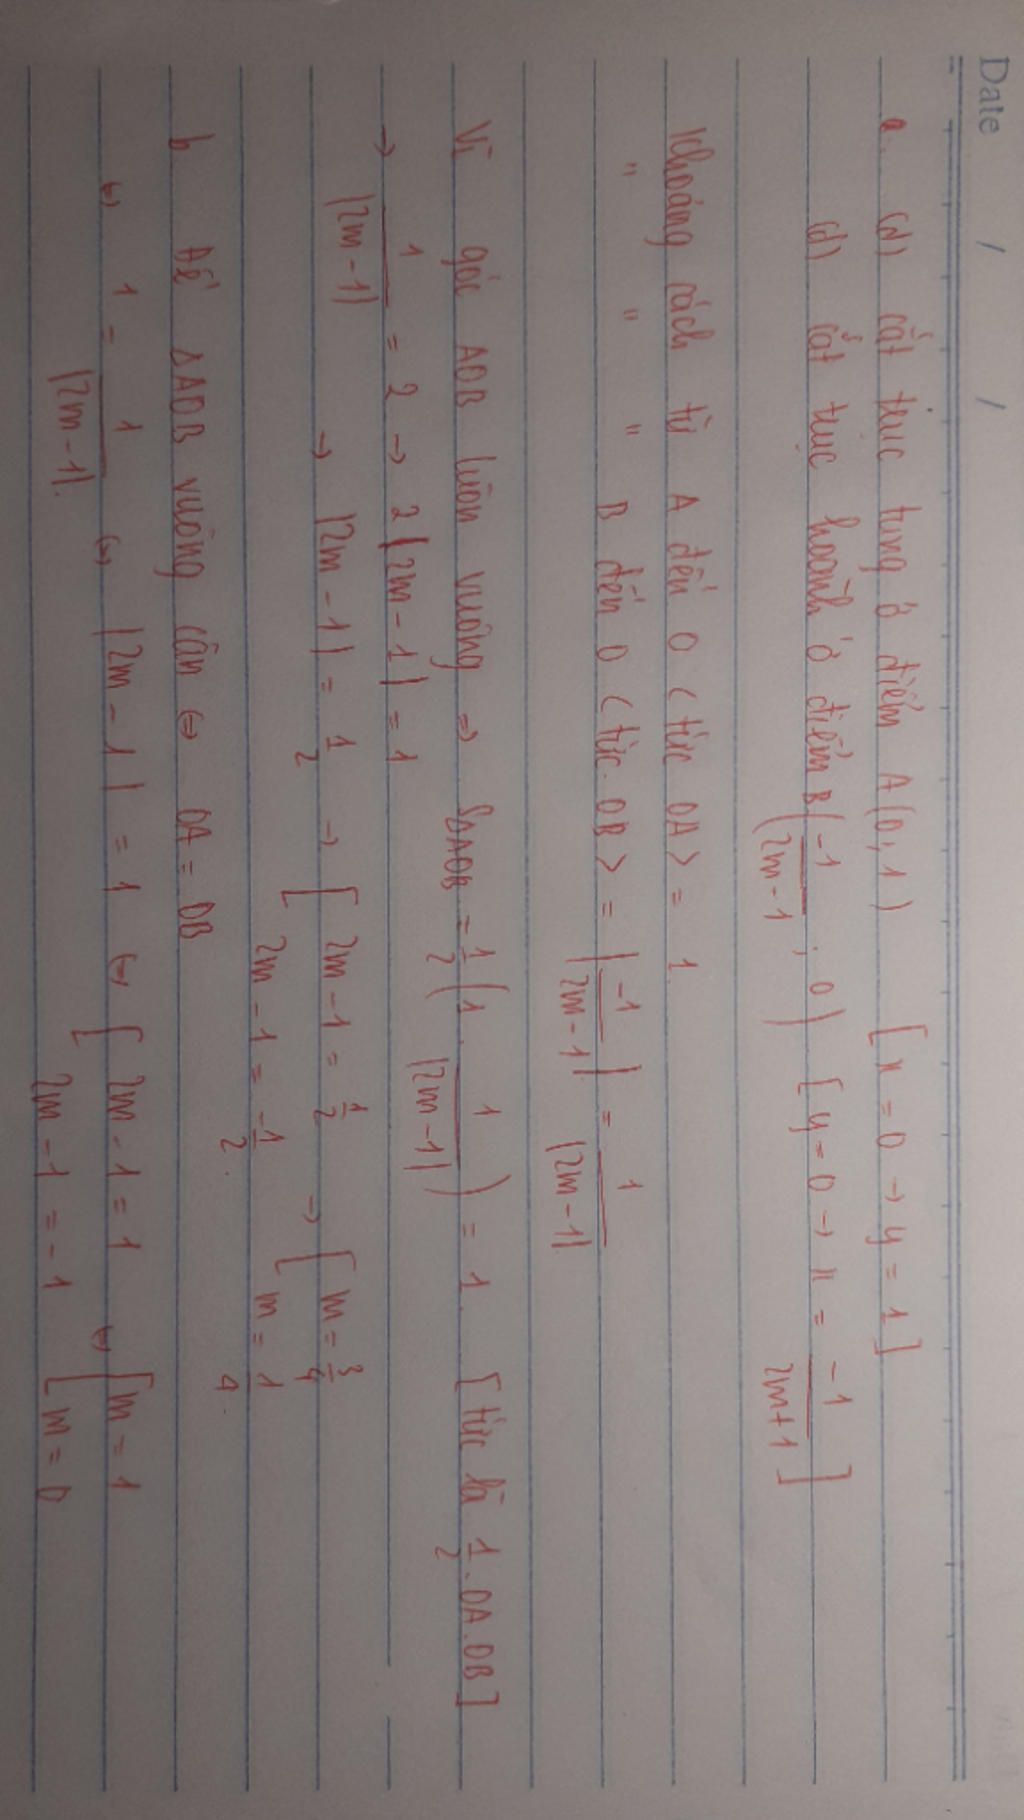 Date / /
a. (d) cắt trục tung ở điểm A(0,1) [x=0 → y=1]
(d) cắt trục hoành ở điểm B(-1/2m-1 ; 0) [y=0 → x = -1/2m+1]
Khoảng cách từ A đến O (tức OA) = 1
" " " B đến O (tức OB) = |-1/2m-1| = 1/|2m-1|
Vì góc AOB luôn vuông ⇒ SΔAOB = 1/2(1. 1/|2m-1|) = 1. [tức là 1/2.OA.OB]
→ 1/|2m-1| = 2 → 2|2m-1| = 1
→ |2m-1| = 1/2 → [ 2m-1 = 1/2 → [ m = 3/4
2m-1 = -1/2. m = 1/4.
b Để ΔAOB vuông cân ⇔ OA = OB
⇔ 1 = 1/|2m-1|. ⇔ |2m-1| = 1 ⇔ [ 2m-1 = 1 ⇔ [ m = 1
2m-1 = -1 [ m = 0